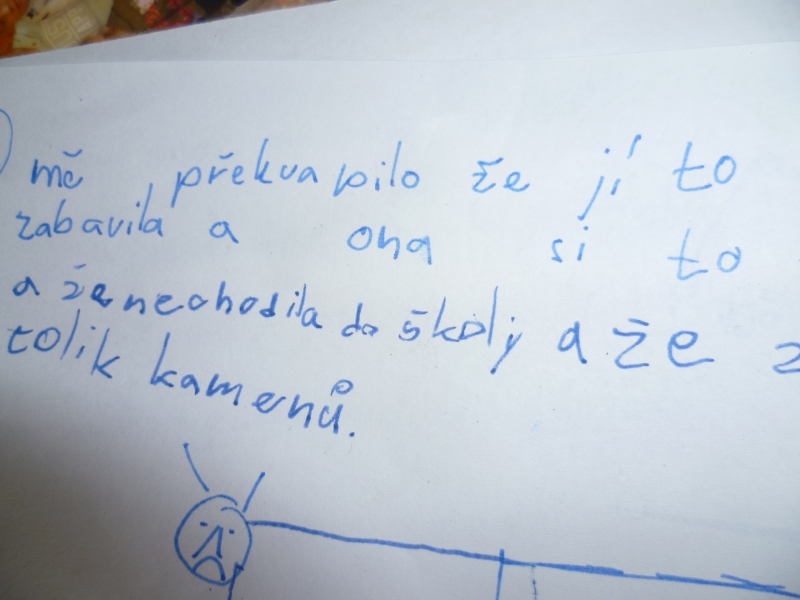 mě překvapilo že jí to
zabavila a ona si to
a že neohodila do školy a že
tolik kamenů.